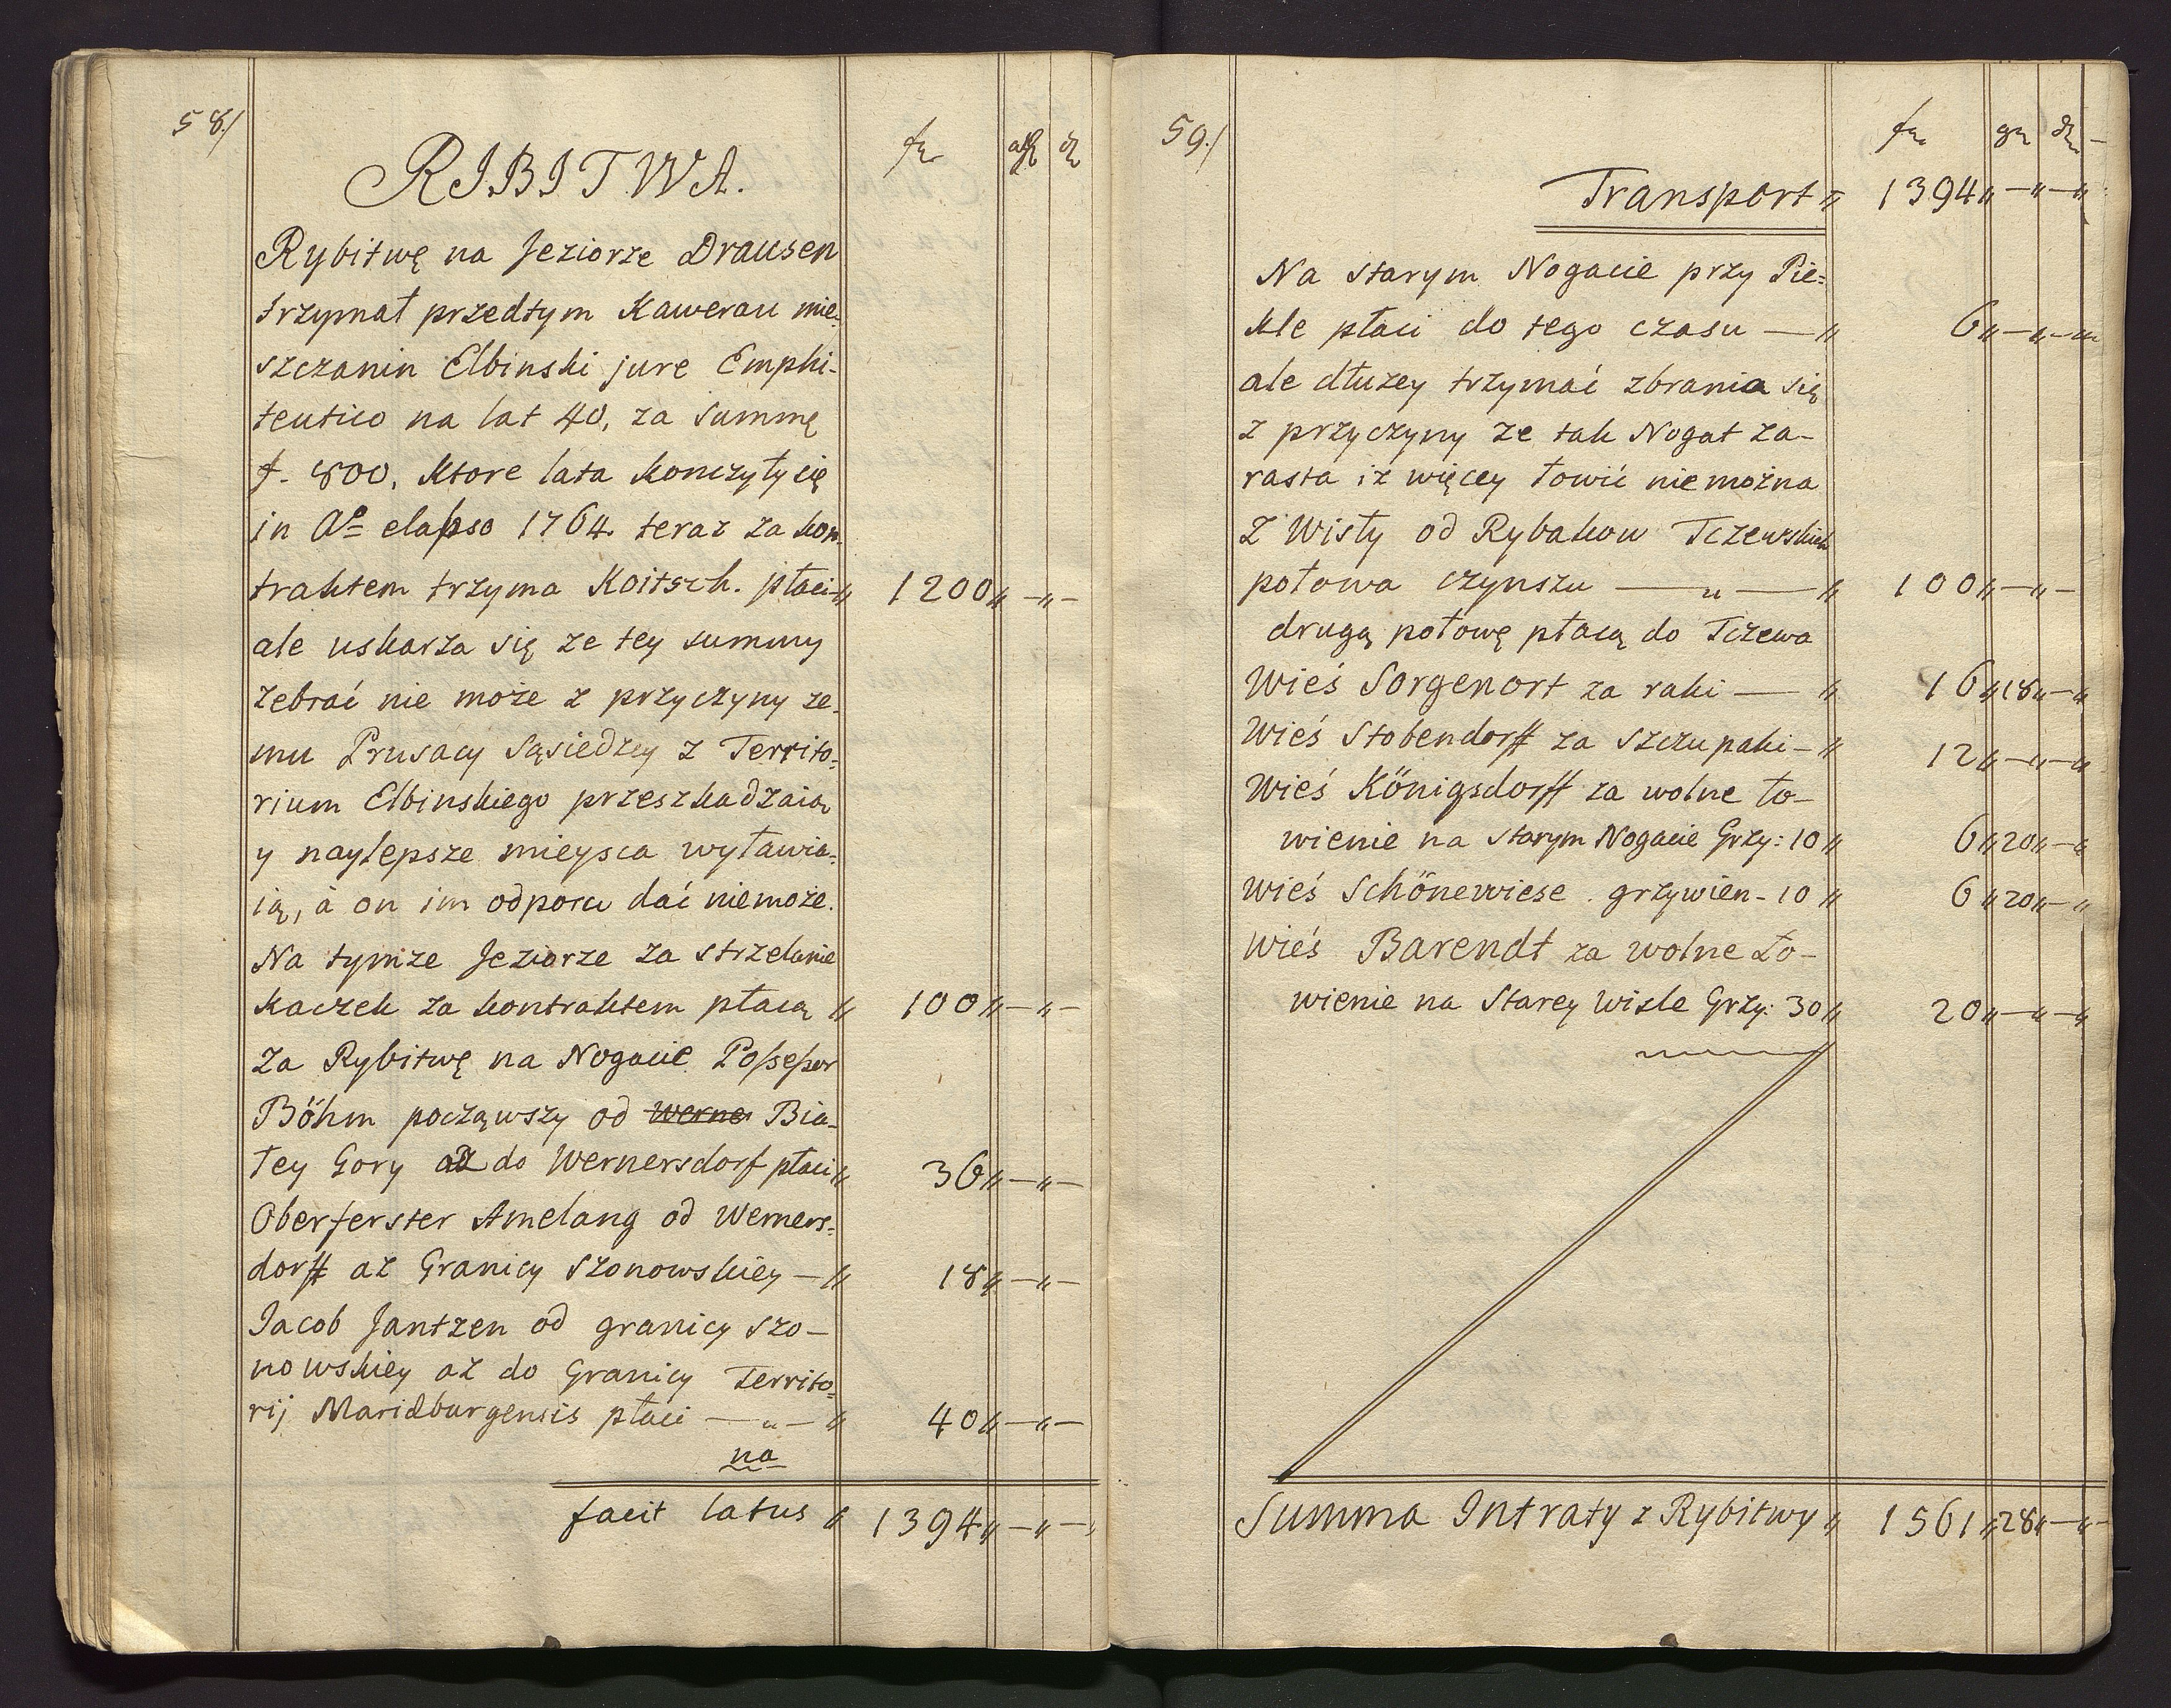 58./
fl gr d
RIBITWA.
Rybitwę na Jeziorze Drausen
trzymał przedtym Kawerau mie-
szczanin Elbinski jure Emphi-
teutico na lat 40, za Summę
f. 800. Ktore lata konczyły cię
in Aº elapso 1764. teraz za kon-
traktem trzyma Koitsch. płaci „ 1200 „ - „ -
ale uskarza się ze tey summy
zebrać nie może z przyczyny ze-
mu Prusacy Sąsiedzey z Territo=
rium Elbinskiego przeszkadzaią
y naylepsze mieysca wyławia=
ią, à on im odporu dać niemoże.
Na tymże Jeziorze za strzelanie
kaczek za kontraktem płacą „ 100 „ - „ -
Za Rybitwę na Nogacie Possessor
Böhm począwszy od Werne Bia-
łey Gory aż do Wernersdorf płaci „ 36 „ - „ -
Oberferster Amelang od Werners=
dorff aż Granicy Szonowskiey - „ 18 „ - „ -
Jacob Jantzen od granicy Szo-
nowskiey aż do Granicy Territo=
rij Marieburgensis płaci - „ - „ 40 „ - „ -
na
facit latus „ 1394 „ - „ -
59./
fl gr d -
Transport „ 1394 „ - „ - „
Na starym Nogacie przy Pie=
kle płaci do tego czasu - „ 6 „ - „ - „
ale dłużey trzymać zbrania się
z przyczyny ze tak Nogat za-
rasta iz więcey łowić niemożna
Z Wisły od Rybakow Tczewskich
połowa czynszu - „ - „ 100 „ - „ -
drugą połowę płacą do Tczewa
Wieś Sorgenort za raki - „ 16 „ 18 „ - „
Wieś Stobendorff za Szczupaki - „ 12 „ - „ - „
Wieś Königsdorff za wolne ło-
wienie na starym Nogacie Grzy: 10 „ 6 „ 20 „ - „
Wieś Schönewiese . grzywien - 10 „ 6 „ 20 „ - „
Wieś Barendt za wolne Ło-
wienie na Starey Wisle Grzy: 30 „ 20 „ - „ - „
Summa Intraty z Rybitwy „ 1561 „ 28 „ - „ -